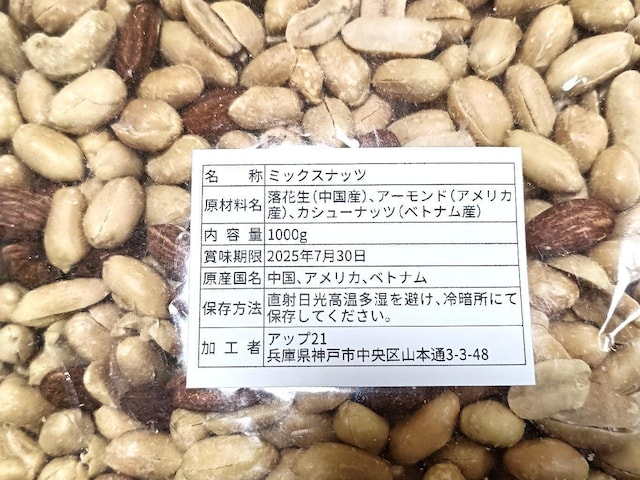 名 称 ミックスナッツ
原材料名 落花生(中国産)、アーモンド(アメリカ
産)、カシューナッツ(ベトナム産)
内 容 量 1000g
賞味期限 2025年7月30日
原産国名 中国、アメリカ、ベトナム
保存方法 直射日光高温多湿を避け、冷暗所にて
保存してください。
加 工 者 アップ21
兵庫県神戸市中央区山本通3-3-48